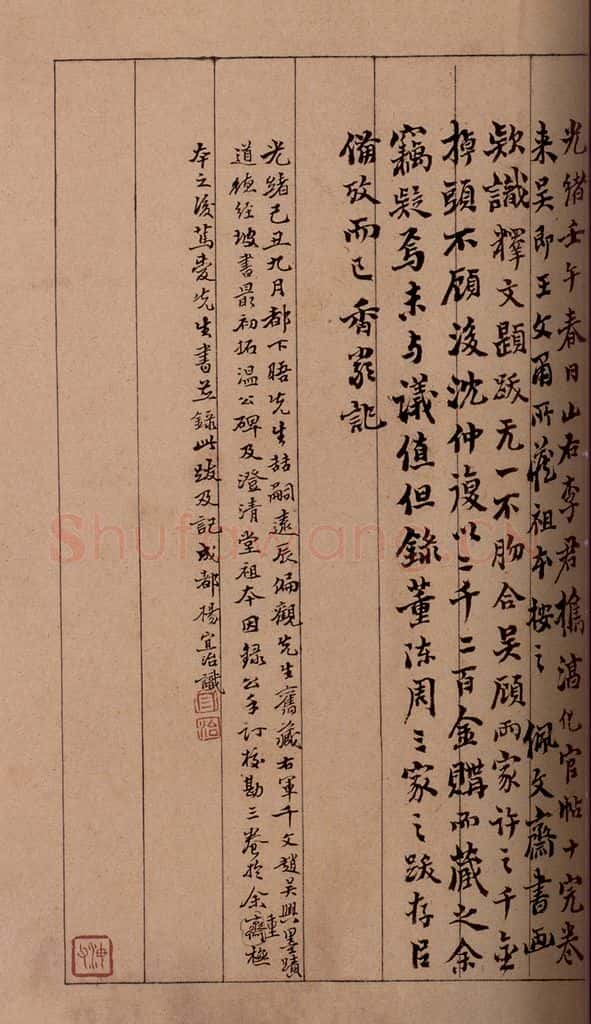 光緒壬午春日山右李君攜淳化官帖十完卷
来吴即王文甫所藏祖本按之佩文齋書画
欵識釋文題跋无一不脗合吴顧兩家许之千金
掉頭不顧後沈仲復以二千二百金購而藏之余
竊疑焉未与議值但錄董陈周三家之跋存㠯
備攷而已香嚴記
光緒己丑九月都下晤先生喆嗣遠辰徧觀先生舊藏右軍千文趙吴興墨蹟
道德經坡書最初拓温公碑及澄清堂祖本因録公手订校勘三卷於余齋重橅
本之後篤愛先生書並録此跋及記成都楊宜治識
宜治
Shufawang.cn